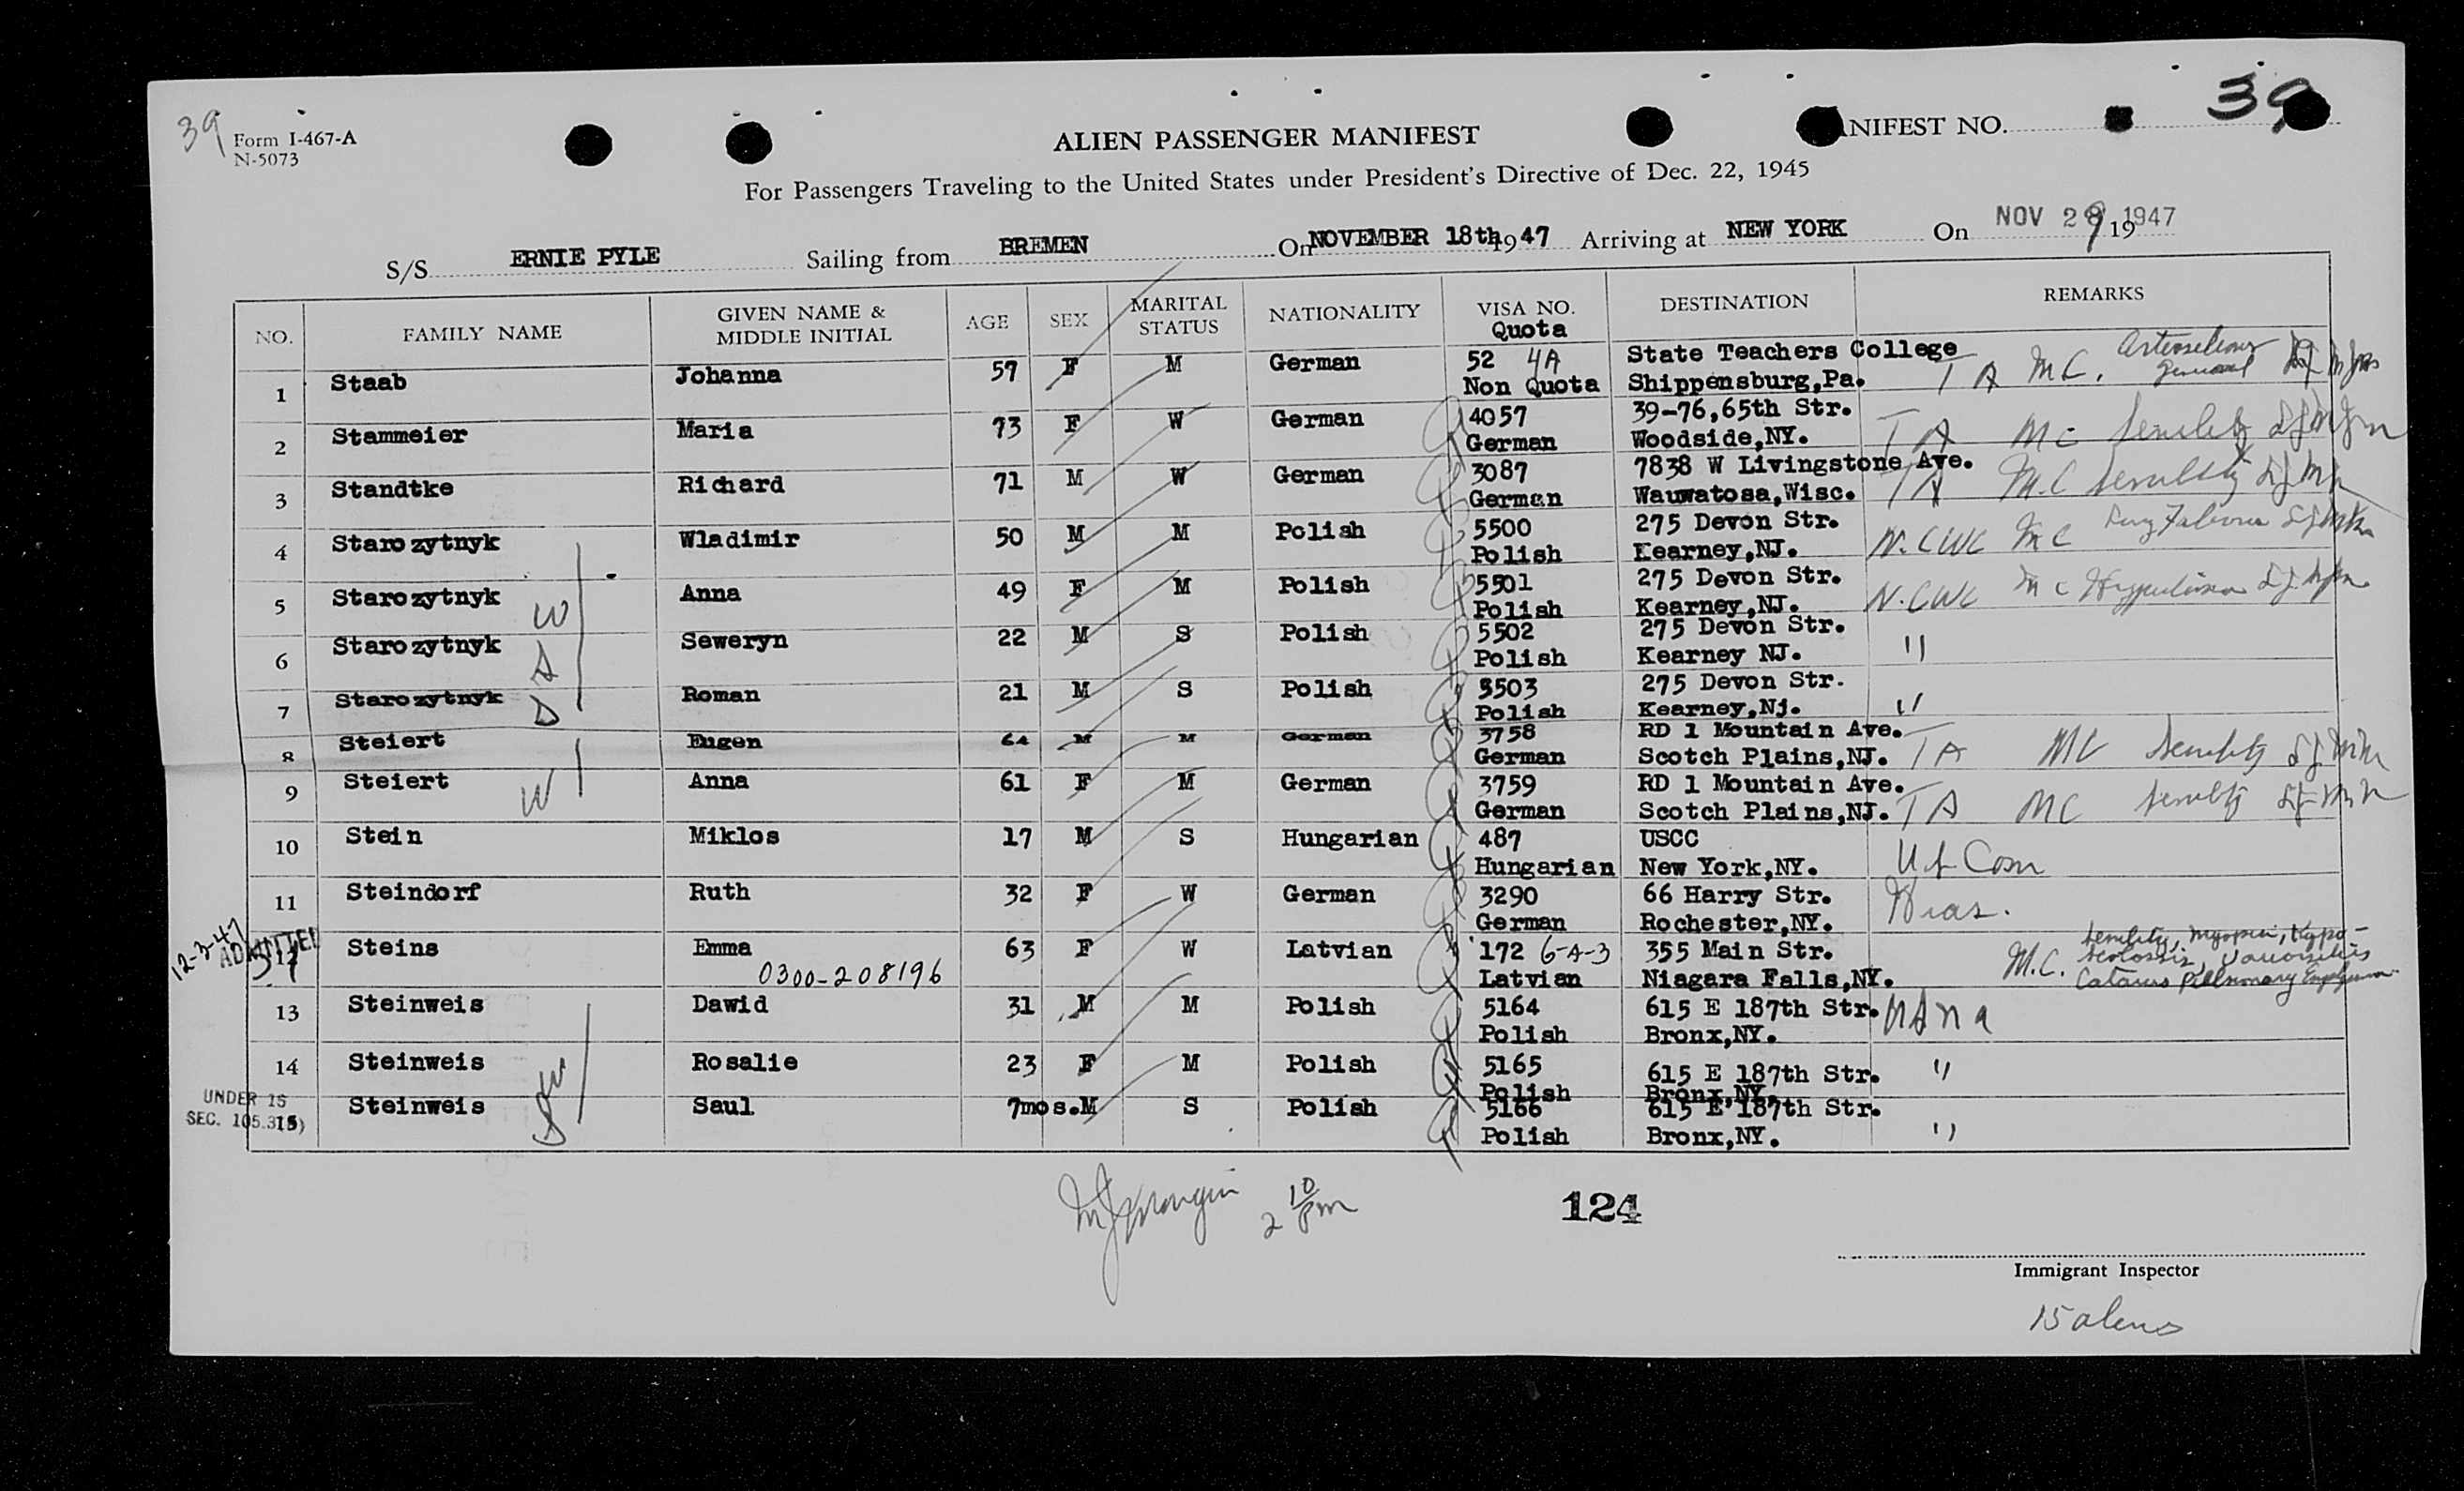 39
Form I-467-A
N-5073
ALIEN PASSENGER MANIFEST
ANIFEST NO. 39
For Passengers Traveling to the United States under President's Directive of Dec. 22, 1945
S/S ERNIE PYLE Sailing from BREMEN On NOVEMBER 18th 1947 Arriving at NEW YORK On NOV 29 19 1947
NO. FAMILY NAME GIVEN NAME & MIDDLE INITIAL AGE SEX MARITAL STATUS NATIONALITY VISA NO. Quota DESTINATION REMARKS
1 Staab Johanna 59 F M German 52 4A State Teachers College
Non Quota Shippensburg,Pa. T A M C.
2 Stammeier Maria 73 F W German 4057 39-76,65th Str.
German Woodside,NY. T A MC Senility
3 Standtke Richard 71 M W German 3087 7838 W Livingstone Ave.
German Wauwatosa,Wisc. T A M.C Senility
4 Starozytnyk Wladimir 50 M M Polish 5500 275 Devon Str.
Polish Kearney,NJ. N.CWC MC
5 Starozytnyk Anna 49 F M Polish 5501 275 Devon Str.
W Polish Kearney,NJ. N.CWC MC
6 Starozytnyk Seweryn 22 M S Polish 5502 275 Devon Str.
Polish Kearney NJ. "
7 Starozytnyk Roman 21 M S Polish 5503 275 Devon Str.
D Polish Kearney,Nj. "
8 Steiert Eugen M M German 3758 RD 1 Mountain Ave.
German Scotch Plains,NJ. T A MC Senility
9 Steiert Anna 61 F M German 3759 RD 1 Mountain Ave.
W German Scotch Plains,NJ. T A MC Senility
10 Stein Miklos 17 M S Hungarian 487 USCC
Hungarian New York,NY. US Com
11 Steindorf Ruth 32 F W German 3290 66 Harry Str.
German Rochester,NY. Hias.
12-3-47 ADMITTED
12 Steins Emma 63 F W Latvian 172 6-A-3 355 Main Str.
0300-208196 Latvian Niagara Falls,NY. M.C. Senility, myopia,
13 Steinweis Dawid 31 M M Polish 5164 615 E 187th Str.
Polish Bronx,NY.
14 Steinweis Rosalie 23 F M Polish 5165 615 E 187th Str. "
W Polish Bronx,NY.
UNDER 15
SEC. 105.3(5)
15 Steinweis Saul 7mos. M S Polish 5166 615 E 187th Str.
Polish Bronx,NY. "
2 10 pm
124
Immigrant Inspector
15 aliens